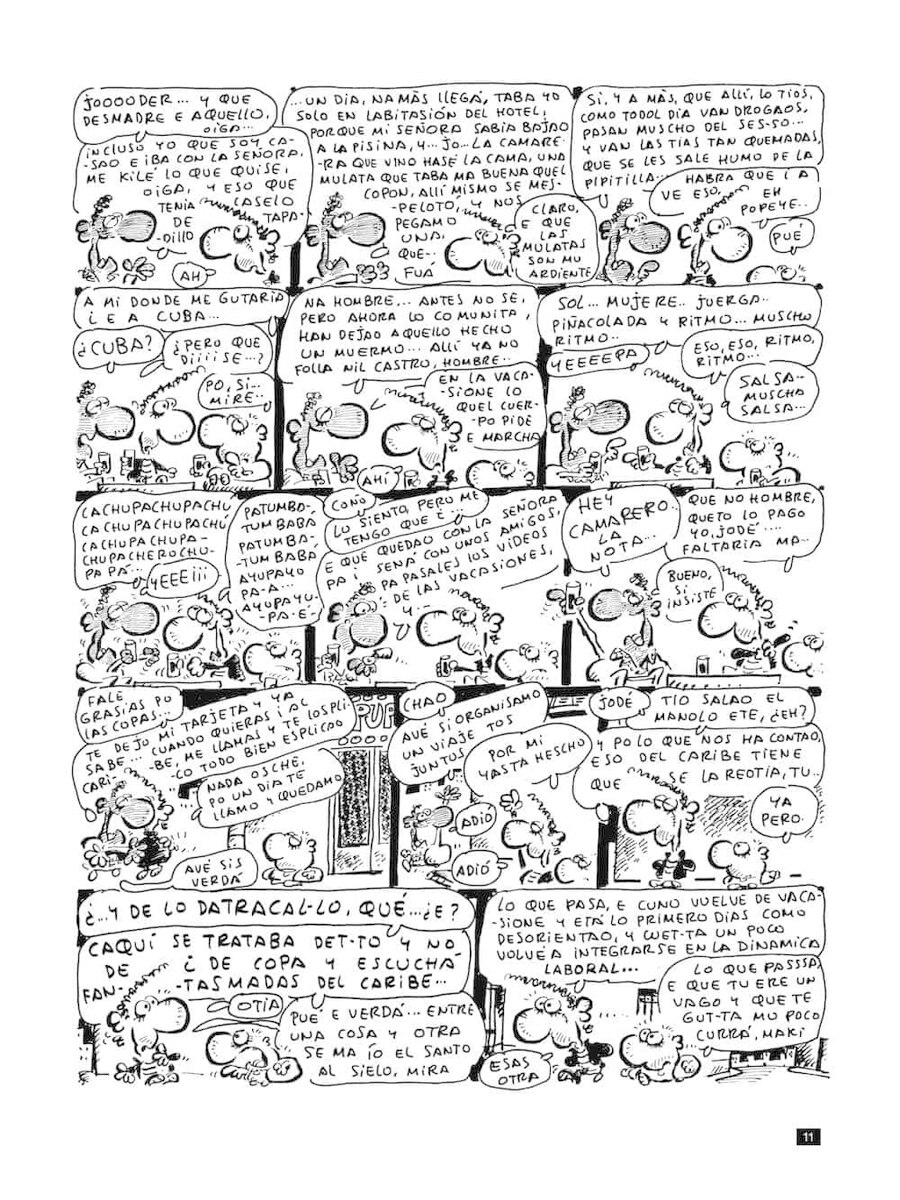 JOOOODER... Y QUE
DESMADRE E AQUELLO,
OIGA...
INCLUSO YO QUE SOY CA-
-SAO E IBA CON LA SEÑORA,
ME KILÉ LO QUE QUISE,
OIGA, Y ESO QUE
TENIA CASELO
DE TAPA-
-DILLO
AH
...UN DIA, NAMÀS LLEGÁ, TABA YO
SOLO EN LABITASIÓN DEL HOTEL,
PORQUE MI SEÑORA SABIA BAJAO
A LA PISINA, Y... JO... LA CAMARE-
-RA QUE VINO HASÉ LA CAMA, UNA
MULATA QUE TABA MA BUENA QUEL
COPON, ALLÍ MISMO SE MES-
-PELOTÓ, Y NOS
PEGAMO
UNA,
QUE--
FUÁ
CLARO,
E QUE
LAS
MULATAS
SON MU
ARDIENTE
SI, Y A MÀS, QUE ALLÍ, LO TIOS,
COMO TODOL DIA VAN DROGAOS,
PASAN MUSCHO DEL SES-SO...
Y VAN LAS TIAS TAN QUEMADAS,
QUE SE LES SALE HUMO DE LA
PIPITILLA...
HABRA QUE I A
VE ESO,
EH
POPEYE..
PUÉ
A MI DONDE ME GUTARIA
I E A CUBA...
¿CUBA?
¿PERO QUE
DIIIISE..?
PO, SI..
MIRE..
NA HOMBRE,.. ANTES NO SE,
PERO AHORA LO COMUNITA,
HAN DEJAO AQUELLO HECHO
UN MUERMO... ALLÍ YA NO
FOLLA NIL CASTRO, HOMBRE..
EN LA VACA-
-SIONE LO
QUEL CUER-
-PO PIDE
E MARCHA
AHÍ
SOL... MUJERE.. JUERGA..
PIÑACOLADA Y RITMO... MUSCHO
RITMO..
YEEEEPA
ESO, ESO, RITMO,
RITMO...
SALSA..
MUSCHA
SALSA...
CACHUPACHUPACHU
CACHUPACHUPACHÚ
CACHUPACHUPA-
CHUPACHEROCHU-
PAPÁ...
YEEEiii
PATUMBA-,
-TUM BABA
PATUMBA-,
-TUM BABA
AYUPAYO
PA-A...
AYUPAYU-
-PA-E..
COÑO
LO SIENTO, PERO ME
TENGO QUE I...
E QUE QUEDAO CON LA SEÑORA
PA I SENÁ CON UNOS AMIGOS,
PA PASALES LOS VIDEOS
DE LAS VACASIONES,
Y...
HEY
CAMARERO..
LA
NOTA...
QUE NO HOMBRE,
QUETO LO PAGO
YO, JODÉ....
FALTARIA MA..
BUENO,
SI
INSISTE
FALE
GRASIAS PO
LAS COPAS...
TE DEJO MI TARJETA Y YA
SABE... CUANDO QUIERAS I AL
CARI- -BE, ME LLAMAS Y TE LOSPLI-
-CO TODO BIEN ESPLICAO
NADA OSCHE,
PO UN DIA TE
LLAMO Y QUEDAMO
AVÉ SIS
VERDÁ
PUP
CHAO
AVÉ SI, ORGANISAMO
UN VIAJE TOS
JUNTOS
POR MI
YASTA HESCHO
ADIÓ
ADIÓ
JODÉ
TÍO SALAO EL
MANOLO ETE, ¿EH?
Y PO LO QUE NOS HA CONTAO,
ESO DEL CARIBE TIENE
QUE SE LA REOTIA, TU..
YA
PERO.
¿..Y DE LO DATRACAL-LO, QUÉ...¿E?
CAQUÍ SE TRATABA DET-TO Y NO
DE I DE COPA Y ESCUCHÁ
FAN- -TASMADAS DEL CARIBE...
OTIA
PUÉ E VERDÁ... ENTRE
UNA COSA Y OTRA
SE MA ÍO EL SANTO
AL SIELO, MIRA
LO QUE PASA, E CUNO VUELVE DE VACA-
-SIONE Y ETÁ LO PRIMERO DIAS COMO
DESORIENTAO, Y CUET-TA UN POCO
VOLVÉ A INTEGRARSE EN LA DINAMICA
LABORAL...
LO QUE PASSSA,
E QUE TU ERE UN
VAGO Y QUE TE
GUT-TA MU POCO
CURRÁ, MAKI
ESAS
OTRA
11